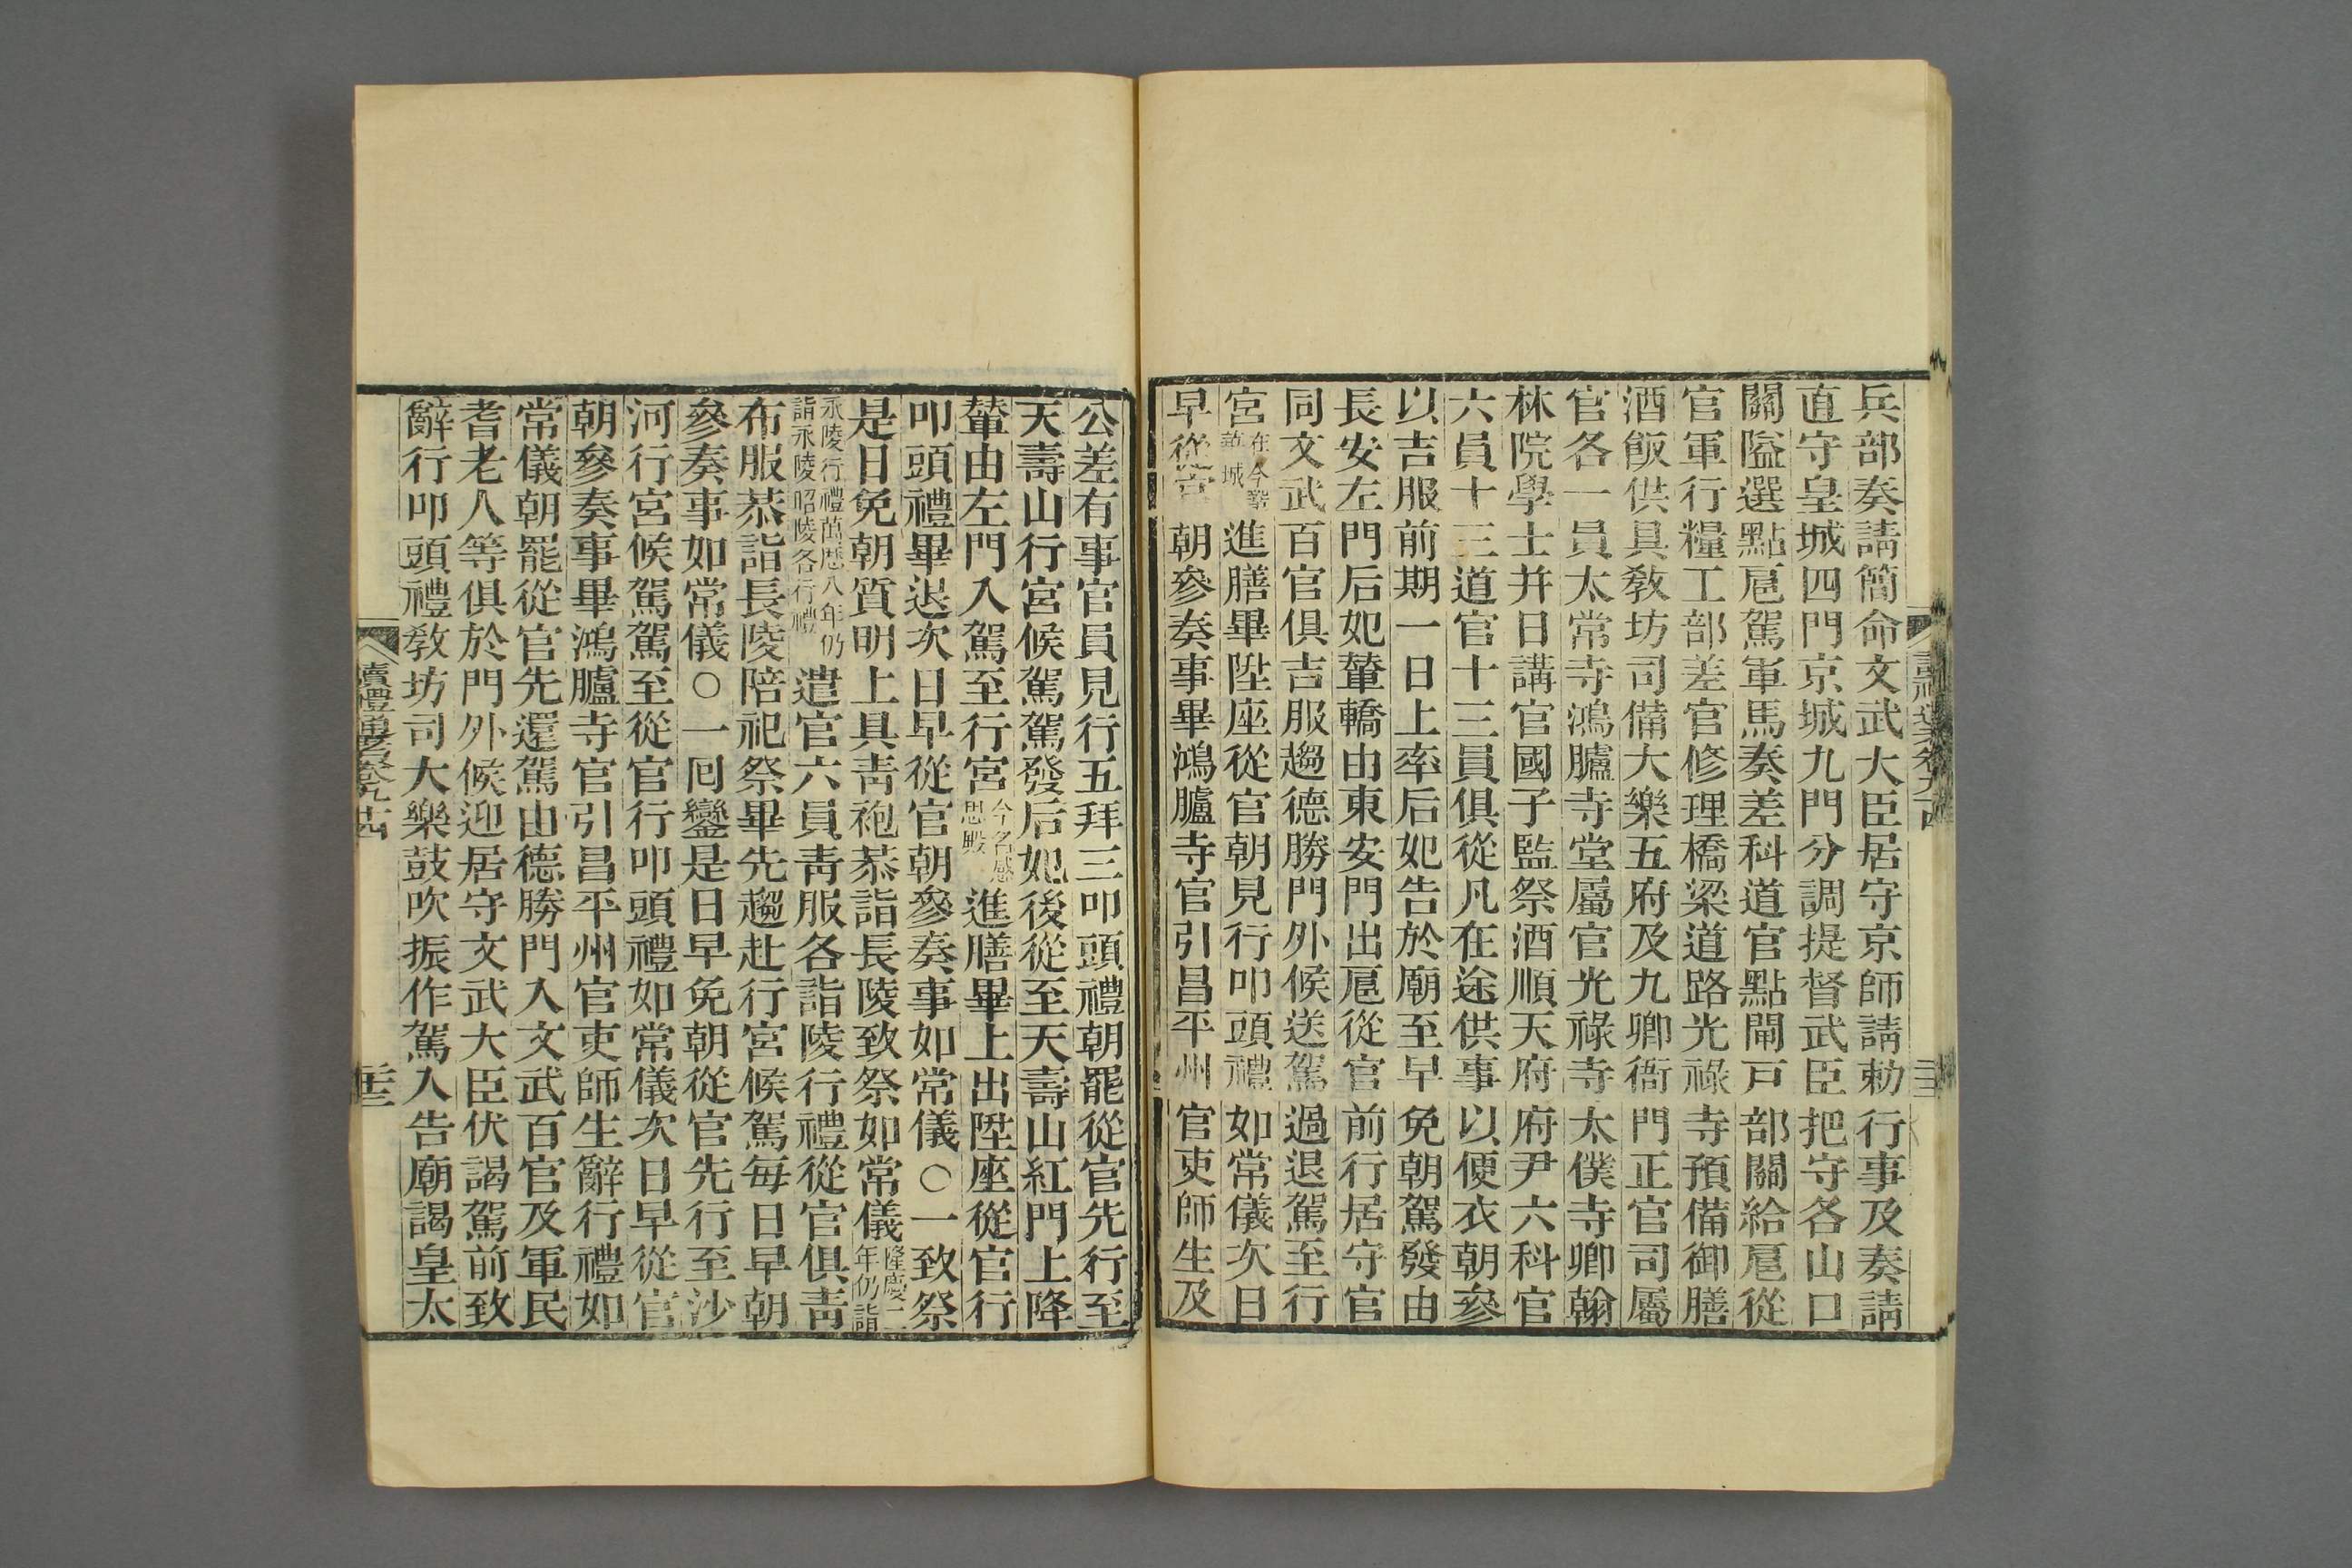 兵部奏請簡命文武大臣居守京師請勅行事及奏請
直守皇城四門京城九門分調提督武臣把守各山口
關隘選點扈駕軍馬奏差科道官點閘戸部關給扈從
官軍行糧工部差官修理橋梁道路光祿寺預備御膳
酒飯供具敎坊司備大樂五府及九卿衙門正官司屬
官各一員太常寺鴻臚寺堂屬官光祿寺太僕寺卿翰
林院學士幷日講官國子監祭酒順天府府尹六科官
六員十三道官十三員俱從凡在途供事以便衣朝參
以吉服前期一日上率后妃告於廟至早免朝駕發由
長安左門后妃輦轎由東安門出扈從官前行居守官
同文武百官俱吉服趨德勝門外候送駕過退駕至行
宮在今鞏華城進膳畢陞座從官朝見行叩頭禮如常儀次日
早從官朝參奏事畢鴻臚寺官引昌平州官吏師生及
公差有事官員見行五拜三叩頭禮朝罷從官先行至
天壽山行宮候駕駕發后妃後從至天壽山紅門上降
輦由左門入駕至行宮今名感思殿進膳畢上出陞座從官行
叩頭禮畢退次日早從官朝參奏事如常儀○一致祭
是日免朝質明上具靑袍恭詣長陵致祭如常儀隆慶二年仍詣
永陵行禮萬曆八年仍詣永陵昭陵各行禮遣官六員靑服各詣陵行禮從官俱靑
布服恭詣長陵陪祀祭畢先趨赴行宮候駕每日早朝
參奏事如常儀○一囘鑾是日早免朝從官先行至沙
河行宮候駕駕至從官行叩頭禮如常儀次日早從官
朝參奏事畢鴻臚寺官引昌平州官吏師生辭行禮如
常儀朝罷從官先還駕由德勝門入文武百官及軍民
耆老人等俱於門外候迎居守文武大臣伏謁駕前致
辭行叩頭禮敎坊司大樂鼓吹振作駕入告廟謁皇太
讀禮通考卷九十四
二十三